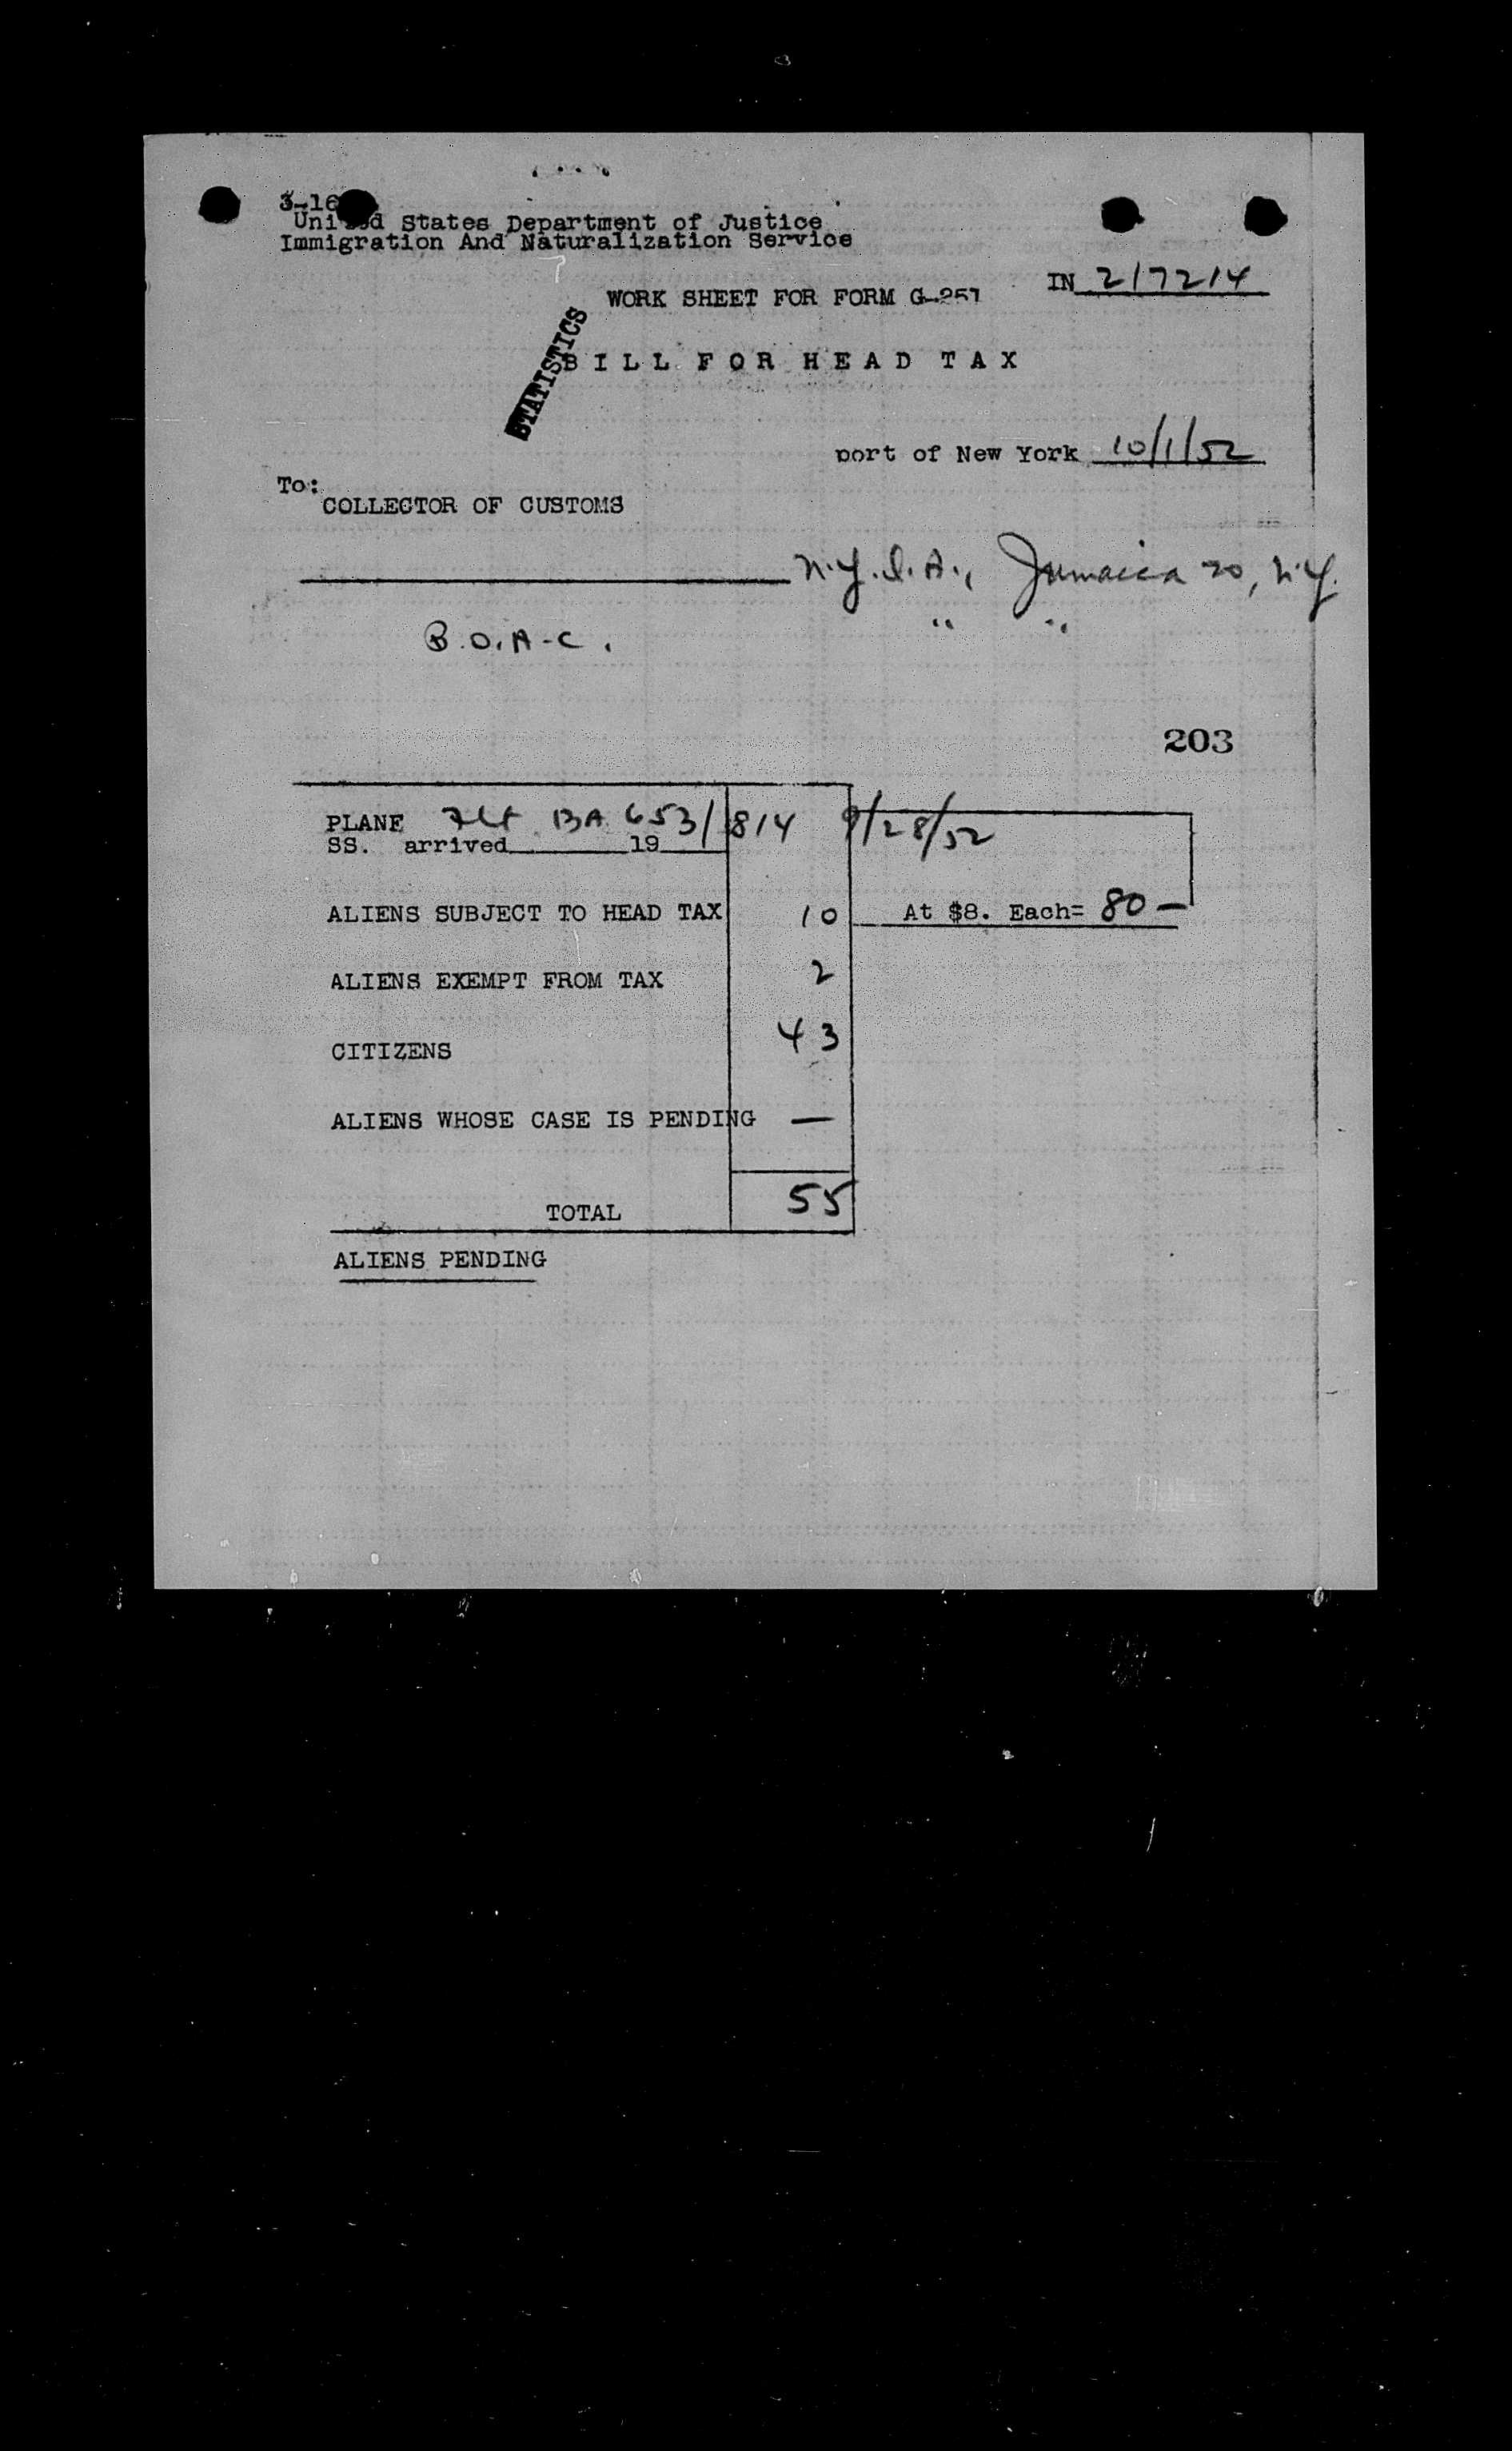 3-16
United States Department of Justice
Immigration And Naturalization Service
IN 217214
WORK SHEET FOR FORM G-257
STATISTICS
BILL FOR HEAD TAX
port of New York 10/1/52
To:
COLLECTOR OF CUSTOMS
N.Y.I.A., Jamaica 20, N.Y.
B.O.A-C. " "
203
PLANE Flt BA 653/814 9/28/52
SS. arrived 19
ALIENS SUBJECT TO HEAD TAX 10 At $8. Each= 80 —
ALIENS EXEMPT FROM TAX 2
CITIZENS 43
ALIENS WHOSE CASE IS PENDING —
TOTAL 55
ALIENS PENDING